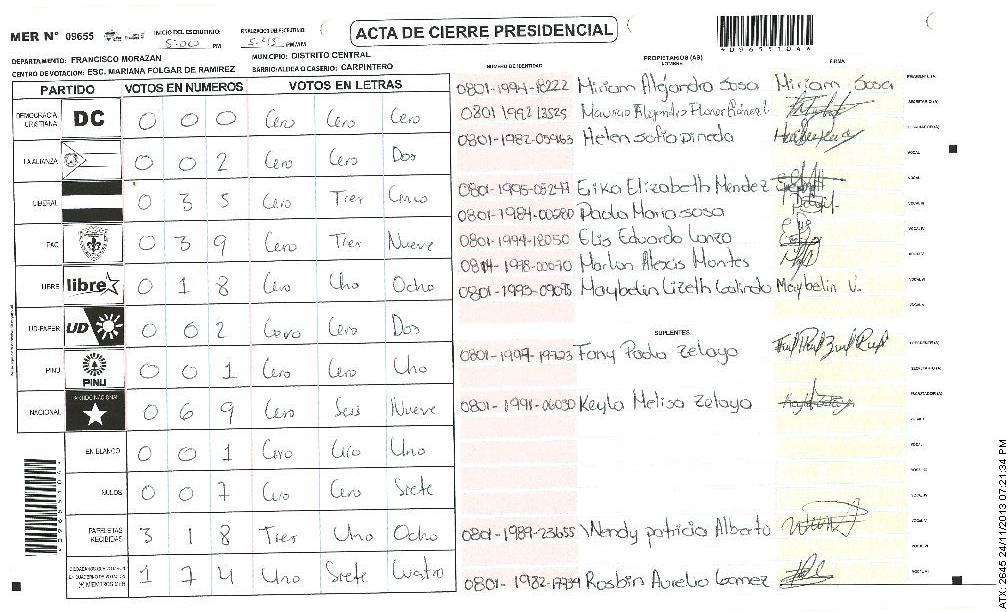 ACTA DE CIERRE PRESIDENCIAL
MER N° 09655
INICIO DEL ESCRUTINIO: 5:00 PM
5:45 PM/AM
DEPARTAMENTO: FRANCISCO MORAZAN
MUNICPIO: DISTRITO CENTRAL
CENTRO DE VOTACION: ESC. MARIANA FOLGAR DE RAMIREZ
BARRIO/ALDEA O CASERIO: CARPINTERO
PARTIDO VOTOS EN NUMEROS VOTOS EN LETRAS
DEMOCRACIA CRISTIANA DC 0 0 0 Cero Cero Cero
LA ALIANZA 0 0 2 Cero Cero Dos
LIBERAL 0 3 5 Cero Tres Cinco
PAC 0 3 9 Cero Tres Nueve
LIBRE libre 0 1 8 Cero Uno Ocho
UD-FAPER UD 0 0 2 Cero Cero Dos
PINU PINU 0 0 1 Cero Cero Uno
NACIONAL 0 6 9 Cero Seis Nueve
EN BLANCO 0 0 1 Cero Cero Uno
NULOS 0 0 7 Cero Cero Siete
PAPELETAS RECIBIDAS 3 1 8 Tres Uno Ocho
1 7 4 Uno Siete Cuatro
NUMERO DE IDENTIDAD
PROPIETARIOS (AS)
NOMBRE
FIRMA
0801-1994-18222 Miriam Alejandra Sosa Miriam Sosa
0801 1992 13525
0801-1982-05963 Helen Sofia Pineda
0801-1995-05247 Erika Elizabeth Mendez
0801-1984-00280 Paola Maria Sosa
0801-1994-18050 Elis Eduardo
Marlon Alexis Montes
Maybelin Lizeth Galindo Maybelin
SUPLENTES
Tony Paola Zelaya
Keyla Melisa Zelaya
0801-1989-23655 Wendy patricia Alberto
Rosbin Aurelio Gomez
ATX 2945 24/11/2013 07:21:34 PM